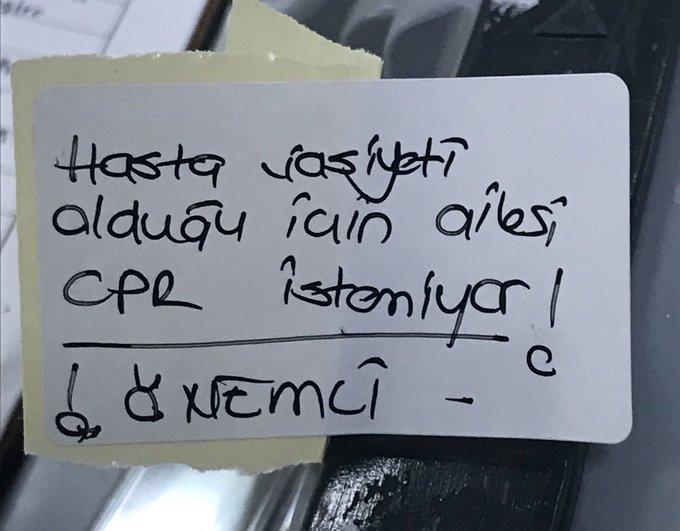 Hasta vasiyeti
olduğu için ailesi
CPR istemiyor!
! ÖNEMLİ -